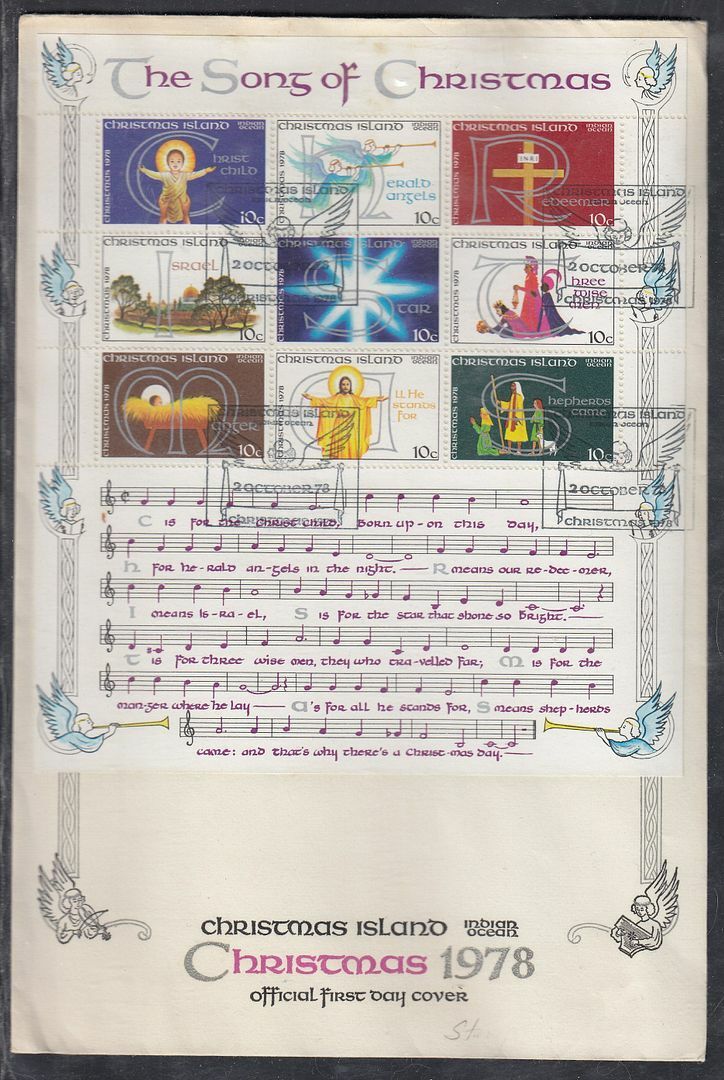 The Song of Christmas
Christmas Island Indian Ocean
Christmas 1978
Christ Child
10c
Christmas Island Indian Ocean
Christmas 1978
Herald Angels
10c
Christmas Island Indian Ocean
Christmas 1978
INRI
Redeemer
10c
Christmas Island Indian Ocean
Christmas 1978
Israel
10c
Christmas Island Indian Ocean
Christmas 1978
Star
10c
Christmas Island Indian Ocean
Christmas 1978
Three Wise Men
10c
Christmas Island Indian Ocean
Christmas 1978
Manger
10c
Christmas Island Indian Ocean
Christmas 1978
All He Stands For
10c
Christmas Island Indian Ocean
Christmas 1978
Shepherds Came
10c
Christmas Island
Indian Ocean
2 October 78
Christmas 1978
Christmas Island
Indian Ocean
2 October 78
Christmas 1978
Christmas Island
Indian Ocean
2 October 78
Christmas 1978
Christmas Island
Indian Ocean
2 October 78
Christmas 1978
C is for the Christ Child, born up-on this day,
H for he-rald an-gels in the night. R means our re-dee-mer,
I means Is-ra-el, S is for the star that shone so bright.
T is for three wise men, they who tra-velled far; M is for the
man-ger where he lay A's for all he stands for, S means shep-herds
came: and that's why there's a Christ-mas Day.
Christmas Island Indian Ocean
Christmas 1978
Official First Day Cover